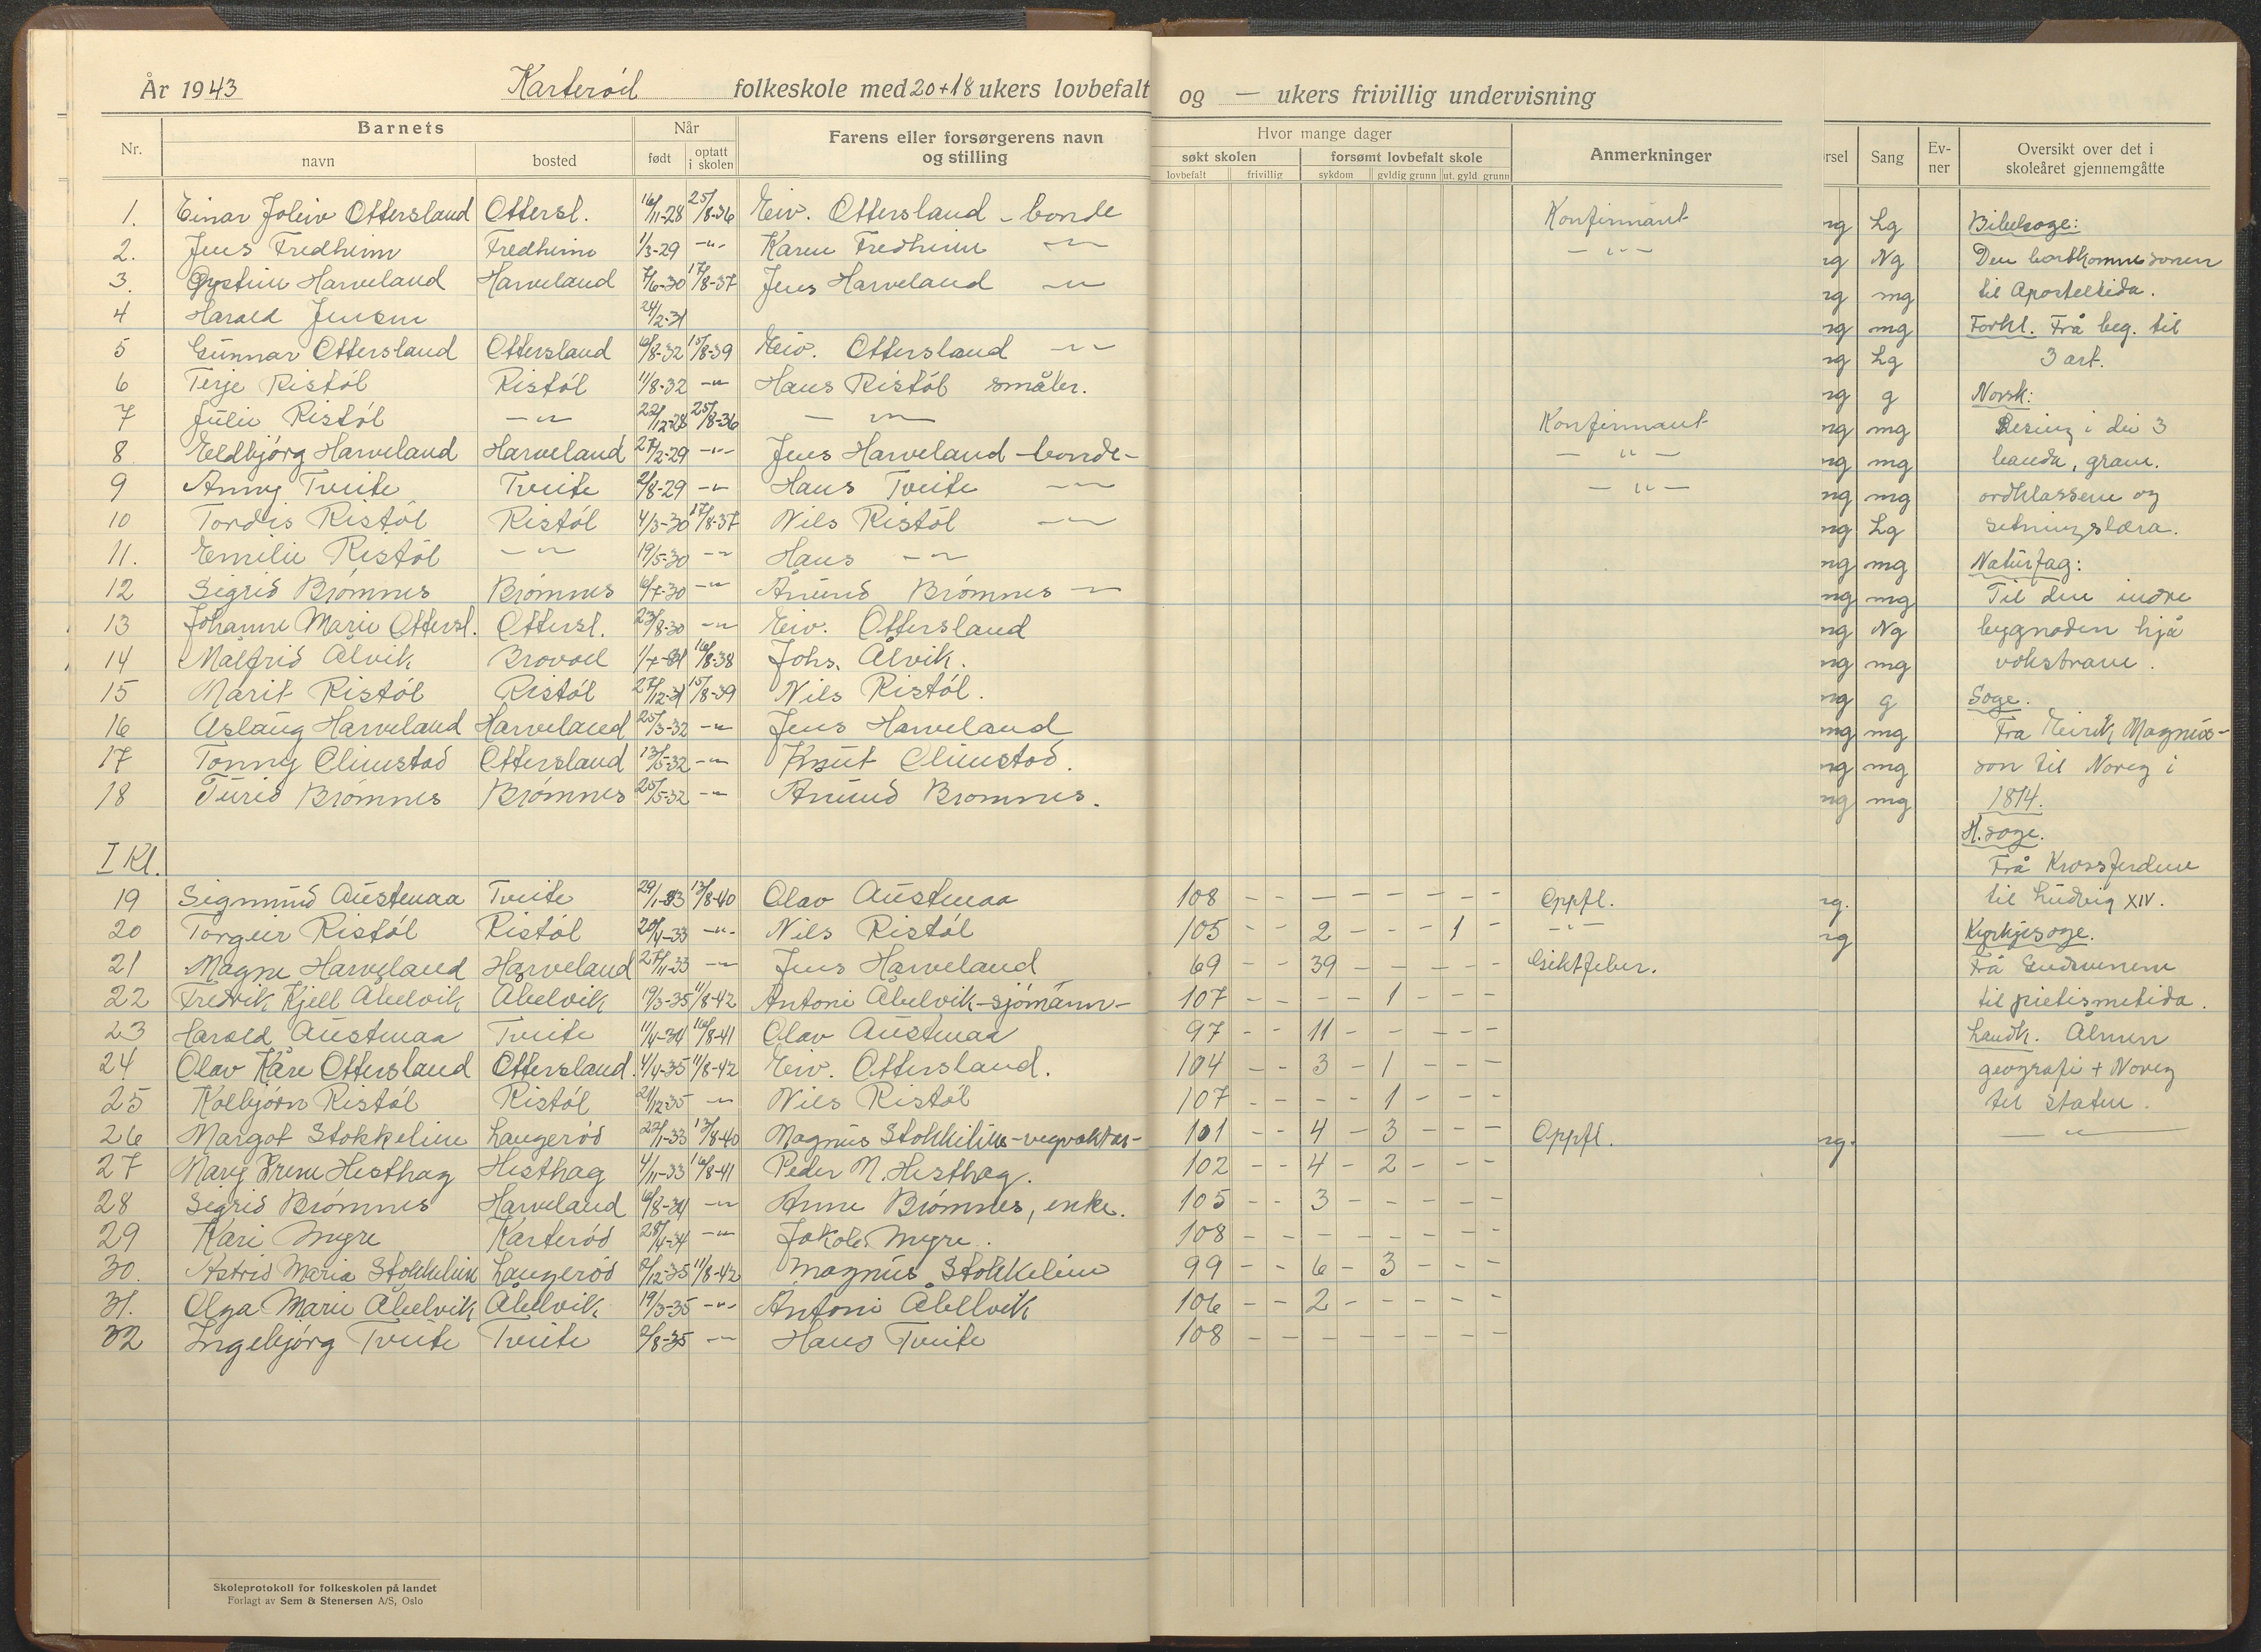 År 1943 Karterød folkeskole med 20+18 ukers lovbefalt og — ukers frivillig undervisning
Nr. Barnets Når Farens eller forsørgerens navn og stilling Hvor mange dager Anmerkninger Sang Ev-ner Oversikt over det i skoleåret gjennemgåtte
navn bosted født optatt i skolen søkt skolen forsømt lovbefalt skole
lovbefalt frivillig sykdom gyldig grunn ut. gyld. grunn
1. Einar Joleiv Ottersland Ottersl. 16/11-28 25/8-36 Eiv. Ottersland - bonde Konfirmant ng Lg
2. Jens Fredheim Fredheim 1/3-29 -"- Karen Fredheim -"- -"- ng Ng
3. Øystein Harveland Harveland 7/6-30 17/8-37 Jens Harveland -"- ng mg
4 Harald Jensen 24/2-31 ng mg
5 Gunnar Ottersland Ottersland 6/8-32 15/8-39 Eiv. Ottersland -"- ng Lg
6 Terje Ristøl Ristøl 11/8-32 -"- Hans Ristøl småbr. ng g
7 Julie Ristøl -"- 22/12-28 25/8-36 -"- Konfirmant ng mg
8 Eldbjørg Harveland Harveland 27/2-29 -"- Jens Harveland -bonde- -"- ng mg
9 Anny Tveite Tveite 2/8-29 -"- Hans Tveite -"- -"- ng mg
10 Tordis Ristøl Ristøl 4/3-30 17/8-37 Nils Ristøl -"- ng Lg
11. Emilie Ristøl -"- 19/5-30 -"- Hans -"- ng mg
12 Sigrid Brømnes Brømnes 6/7-30 -"- Ånund Brømnes -"- ng mg
13 Johanne Marie Ottersl. Ottersl. 23/8-30 -"- Eiv. Ottersland ng Ng
14 Målfrid Ålvik Brovoll 1/7-31 16/8-38 Johs. Ålvik. ng mg
15 Marit Ristøl Ristøl 27/12-31 15/8-39 Nils Ristøl. ng g
16 Aslaug Harveland Harveland 25/3-32 -"- Jens Harveland ng mg
17 Tonny Olimstad Ottersland 13/5-32 -"- Knut Olimstad. ng mg
18 Turid Brømnes Brømnes 25/5-32 -"- Anund Bromnes. ng mg
I Kl.
19 Sigmund Austenaa Tveite 29/1-33 13/8-40 Olav Austenaa 108 - - - - - - - - Oppfl. ng.
20 Torgeir Ristøl Ristøl 20/4-33 -"- Nils Ristøl 105 - - 2 - - - 1 - -"- ng
21 Magne Harveland Harveland 27/11-33 -"- Jens Harveland 69 - - 39 - - - - - Giktfeber.
22 Fredrik Kjell Åbelvik Åbelvik 19/3-35 11/8-42 Antoni Åbelvik -sjømann- 107 - - - - 1 - - -
23 Harald Austenaa Tveite 11/4-34 16/8-41 Olav Austenaa 97 - - 11 - - - - -
24 Olav Kåre Ottersland Ottersland. 4/4-35 11/8-42 Eiv. Ottersland. 104 - - 3 - 1 - - -
25 Kolbjørn Ristøl Ristøl 21/12-35 -"- Nils Ristøl 107 - - - - 1 - - -
26 Margot Stokkelien Langerød 22/1-33 13/8-40 Magnus Stokkelien -vegvokter- 101 - - 4 - 3 - - - Oppfl. ng.
27 Mary Irene Hesthag Hesthag 4/11-33 16/8-41 Peder N. Hesthag. 102 - - 4 - 2 - - -
28 Sigrid Brømnes Harveland 6/8-34 -"- Anne Brømnes, enke. 105 - - 3 - - - - -
29 Kari Myre Karterød 28/4-34 -"- Jakob Myre. 108 - - - - - - - -
30. Astrid Maria Stokkelien Langerød 2/12-35 11/8-42 Magnus Stokkelien 99 - - 6 - 3 - - -
31. Olga Marie Åbelvik Åbelvik 19/3-35 -"- Antoni Åbelvik 106 - - 2 - - - - -
32 Ingebjørg Tveite Tveite 2/8-35 -"- Hans Tveite 108 - - - - - - - -
Bibelsoge:
Den bortkomne sonen
til Aposteltida.
Forkl. Frå beg. til
3 art.
Norsk:
Lesing i dei 3
banda, gram.
ordklassene og
setningslæra.
Naturfag:
Til den indre
bygnaden hjå
vokstrane.
Soge.
Fra Eirik Magnus-
son til Noreg i
1814.
H. soge.
Frå Krossferdene
til Ludvig XIV.
Kyrkjesoge.
Frå Gudsvenene
til pietismetida.
Landk. Ålmen
geografi + Noreg
til staten.
-"-
Skoleprotokoll for folkeskolen på landet
Forlagt av Sem & Stenersen A/S, Oslo